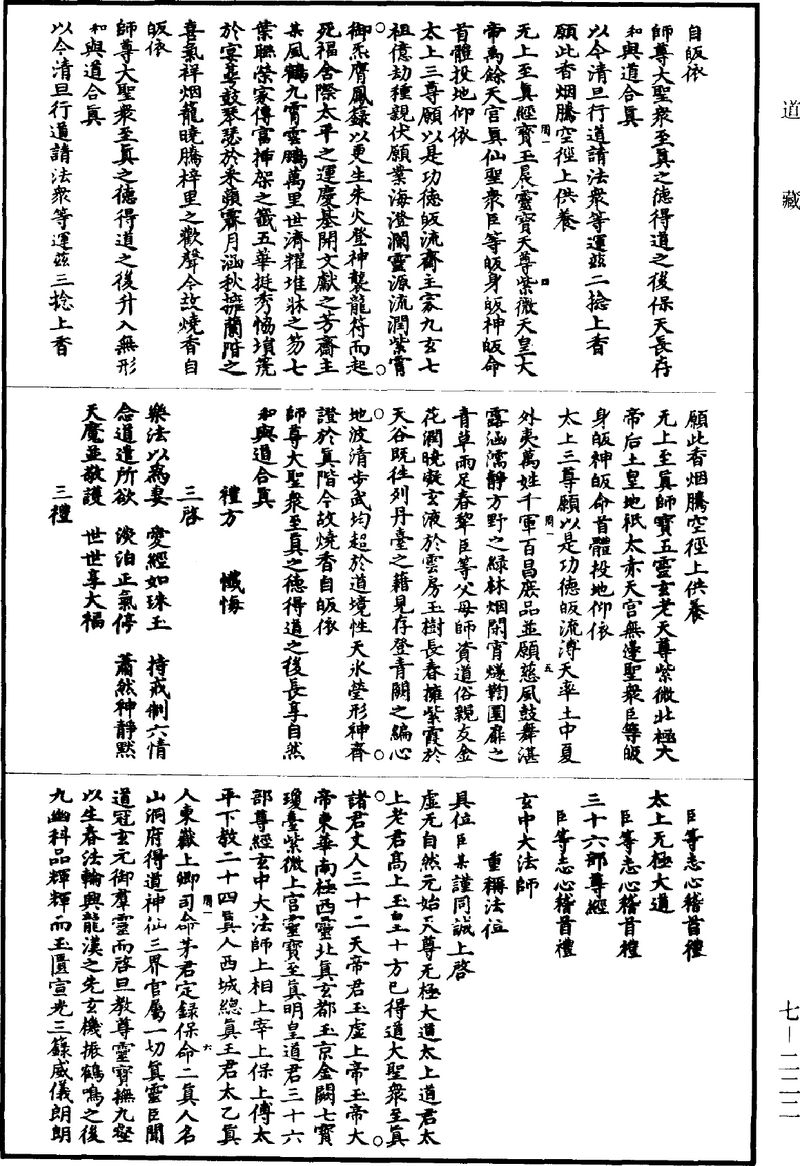 道藏
自皈依
師尊大聖衆至真之德得道之後保天長存
和與道合真
以今清旦行道請法衆等運茲二捻上香
願此香烟騰空徑上供養
无上至真經寶玉晨靈寶天尊紫微天皇大
帝禹餘天官真仙聖衆臣等皈身皈神皈命
首體投地仰依
太上三尊願以是功德皈流齋主家九玄七
祖億劫種親伏願業海澄瀾靈源流潤紫霄
御炁膺鳳籙以更生朱火登神襲龍符而起
死福舍際太平之運慶基開文獻之芳齋主
某風鶴九霄雲鵬萬里世濟耀堆牀之笏七
葉聯榮家傳富揷架之籤五華挺秀恊塤箎
於宴喜鼓琴瑟於采蘋霽月涵秋擁蘭階之
喜氣祥烟籠曉騰梓里之歡聲今故燒香自
皈依
師尊大聖衆至真之德得道之後升入無形
和與道合真
以今清旦行道請法衆等運茲三捻上香
願此香烟騰空徑上供養
无上至真師寶五靈玄老天尊紫微北極大
帝后土皇地祇太赤天官無邊聖衆臣等皈
身皈神皈命首體投地仰依
太上三尊願以是功德皈流溥天率土中夏
外夷萬姓千軍百昌庶品並願慈風鼓舞湛
露涵濡靜方野之綠林烟閑宵燧鞠圜扉之
青草雨足春犂臣等父母師資道俗親友金
花澗曉凝玄液於雲房玉樹長春擁紫霞於
天谷既往列丹臺之籍見存登青闕之編心
地波清步武均超於道境性天氷瑩形神齊
證於真階今故燒香自皈依
師尊大聖衆至真之德得道之後長享自然
和與道合真
禮方　懺悔
三啓
樂法以爲妻　愛經如珠玉　持戒制六情
念道遣所欲　淡泊正氣停　蕭然神靜默
天魔並敬護　世世享大福
三禮
臣等志心稽首禮
太上无極大道
臣等志心稽首禮
三十六部尊經
臣等志心稽首禮
玄中大法師
重稱法位
具位臣某謹同誠上啓
虛无自然元始天尊无極大道太上道君太
上老君高上玉皇十方已得道大聖衆至真
諸君丈人三十二天帝君玉虛上帝玉帝大
帝東華南極西靈北真玄都玉京金闕七寶
瓊臺紫微上宮靈寶至真明皇道君三十六
部尊經玄中大法師上相上宰上保上傅太
平下教二十四真人西城總真王君太乙真
人東嶽上卿司命茅君定錄保命二真人名
山洞府得道神仙三界官屬一切真靈臣聞
道冠玄元御羣靈而啓旦教尊靈寶撫九壑
以生春法輪興龍漢之先玄機振鶴鳴之後
九幽科品輝輝而玉匱宣光三籙威儀朗朗
七－二二二